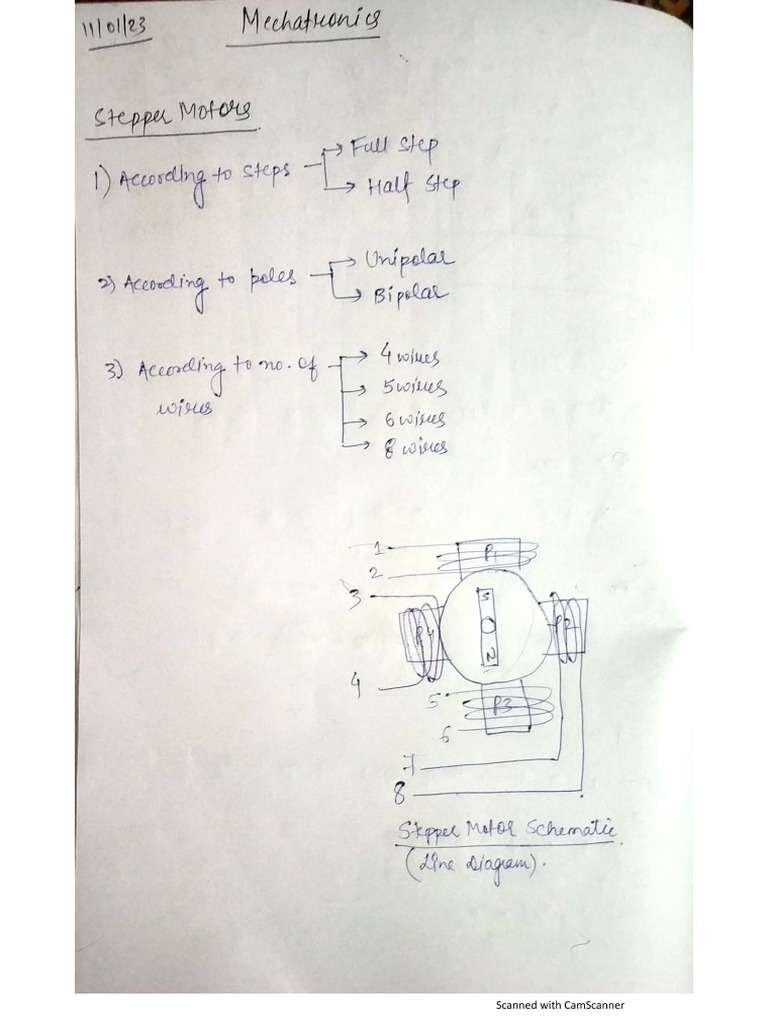 11/01/23
Mechatronics
Stepper Motors
1) According to steps → Full Step
→ Half Step
2) According to poles → Unipolar
→ Bipolar
3) According to no. of wires → 4 wires
→ 5 wires
→ 6 wires
→ 8 wires
1
P1
2
3
S
P4
P2
N
4
5
P3
6
7
8
Stepper Motor Schematic
(Line Diagram).
Scanned with CamScanner